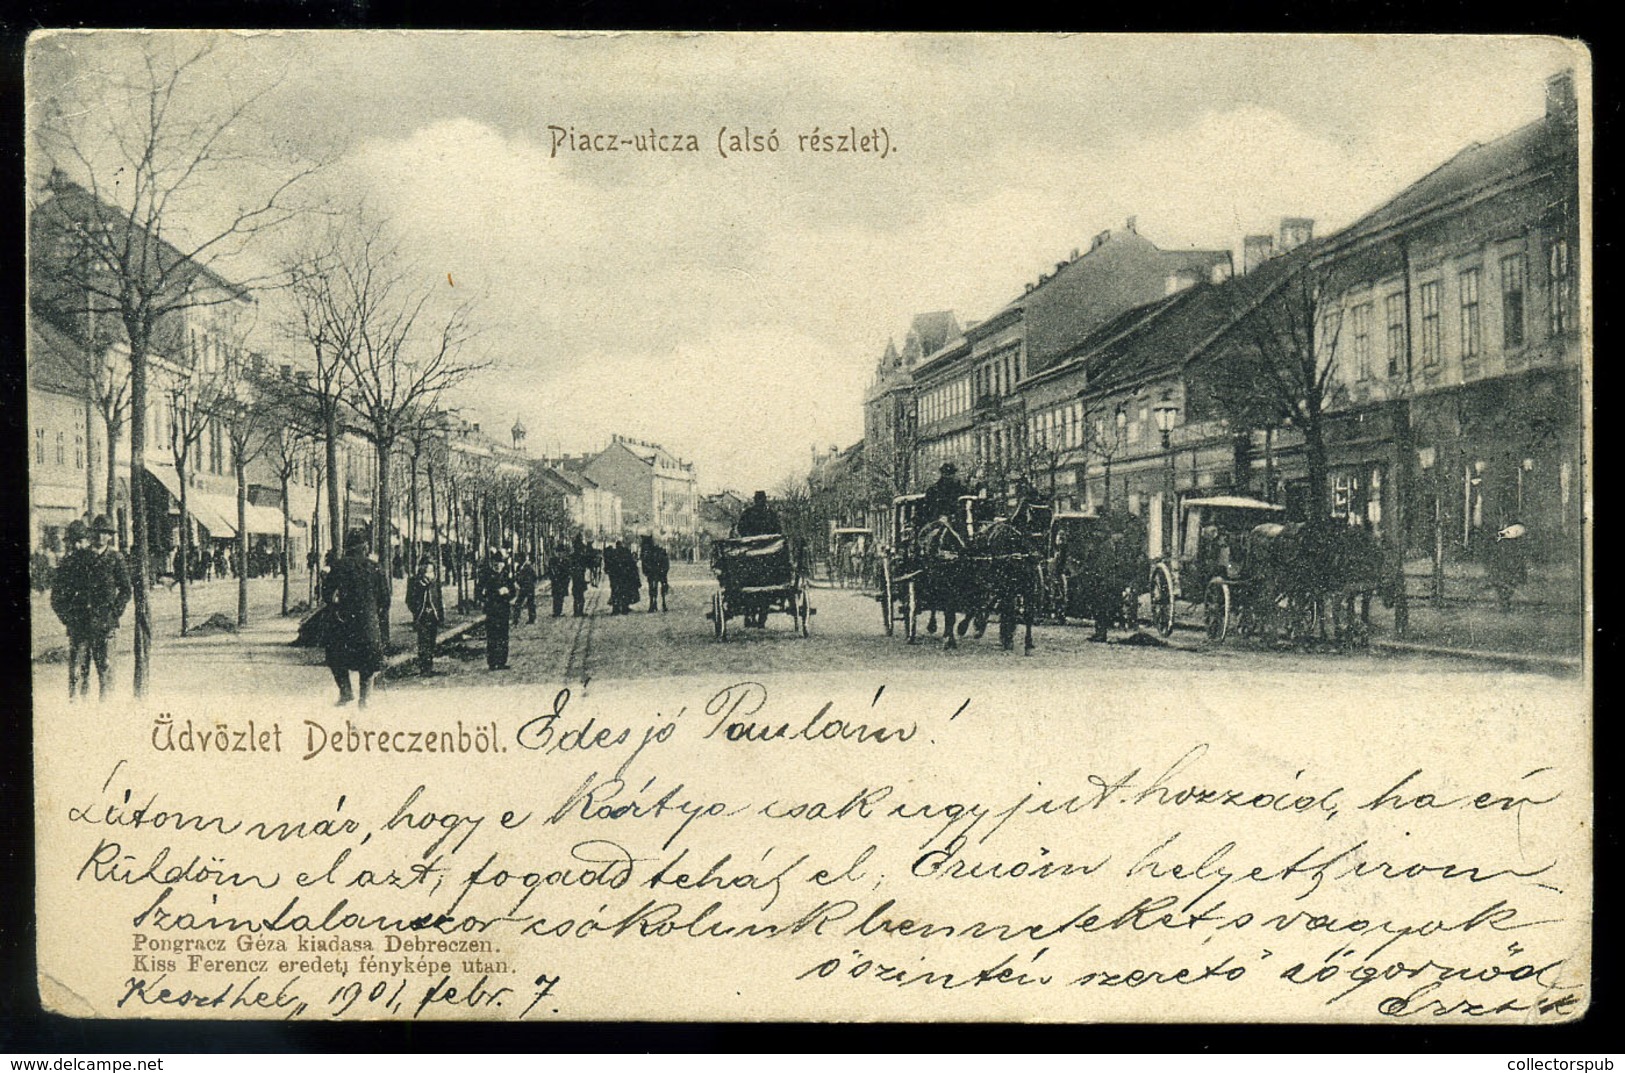 Piacz-utcza (alsó részlet).
Üdvözlet Debreczenböl. Édes jó Paulám!
Látom már, hogy e kártya csak úgy jut hozzád, ha én
küldöm el azt, fogadd tehát el, Ernőm helyett írom
Számtalanszor csókolunk benneteket, s vagyok
Pongracz Géza kiadasa Debreczen.
Kiss Ferencz eredeti fényképe utan.
őszintén szerető sógornőd
Keszthely, 1901, febr. 7.
DEBRECEN 1901. Régi képeslap
collectorspub